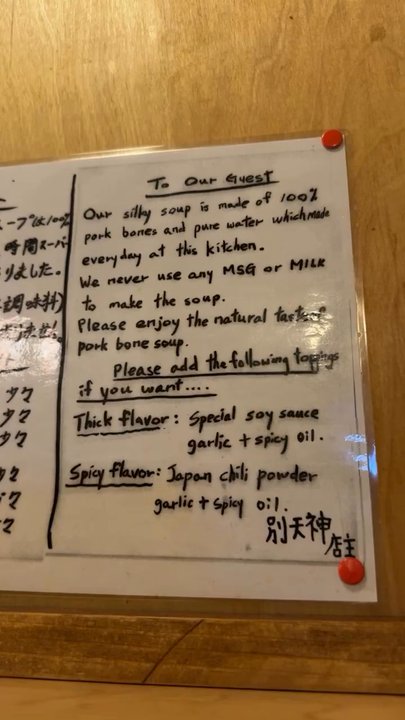 ープは100%
時間スーパー
りました。
調味料)
タク
タク
タク
To Our Guest
Our silky soup is made of 100%
pork bones and pure water which made
everyday at this kitchen.
We never use any MSG or MILK
to make the soup.
Please enjoy the natural taste of
pork bone soup.
Please add the following toppings
if you want....
Thick flavor: Special soy sauce
garlic + spicy oil.
Spicy flavor: Japan chili powder
garlic + spicy oil.
別天神
店主